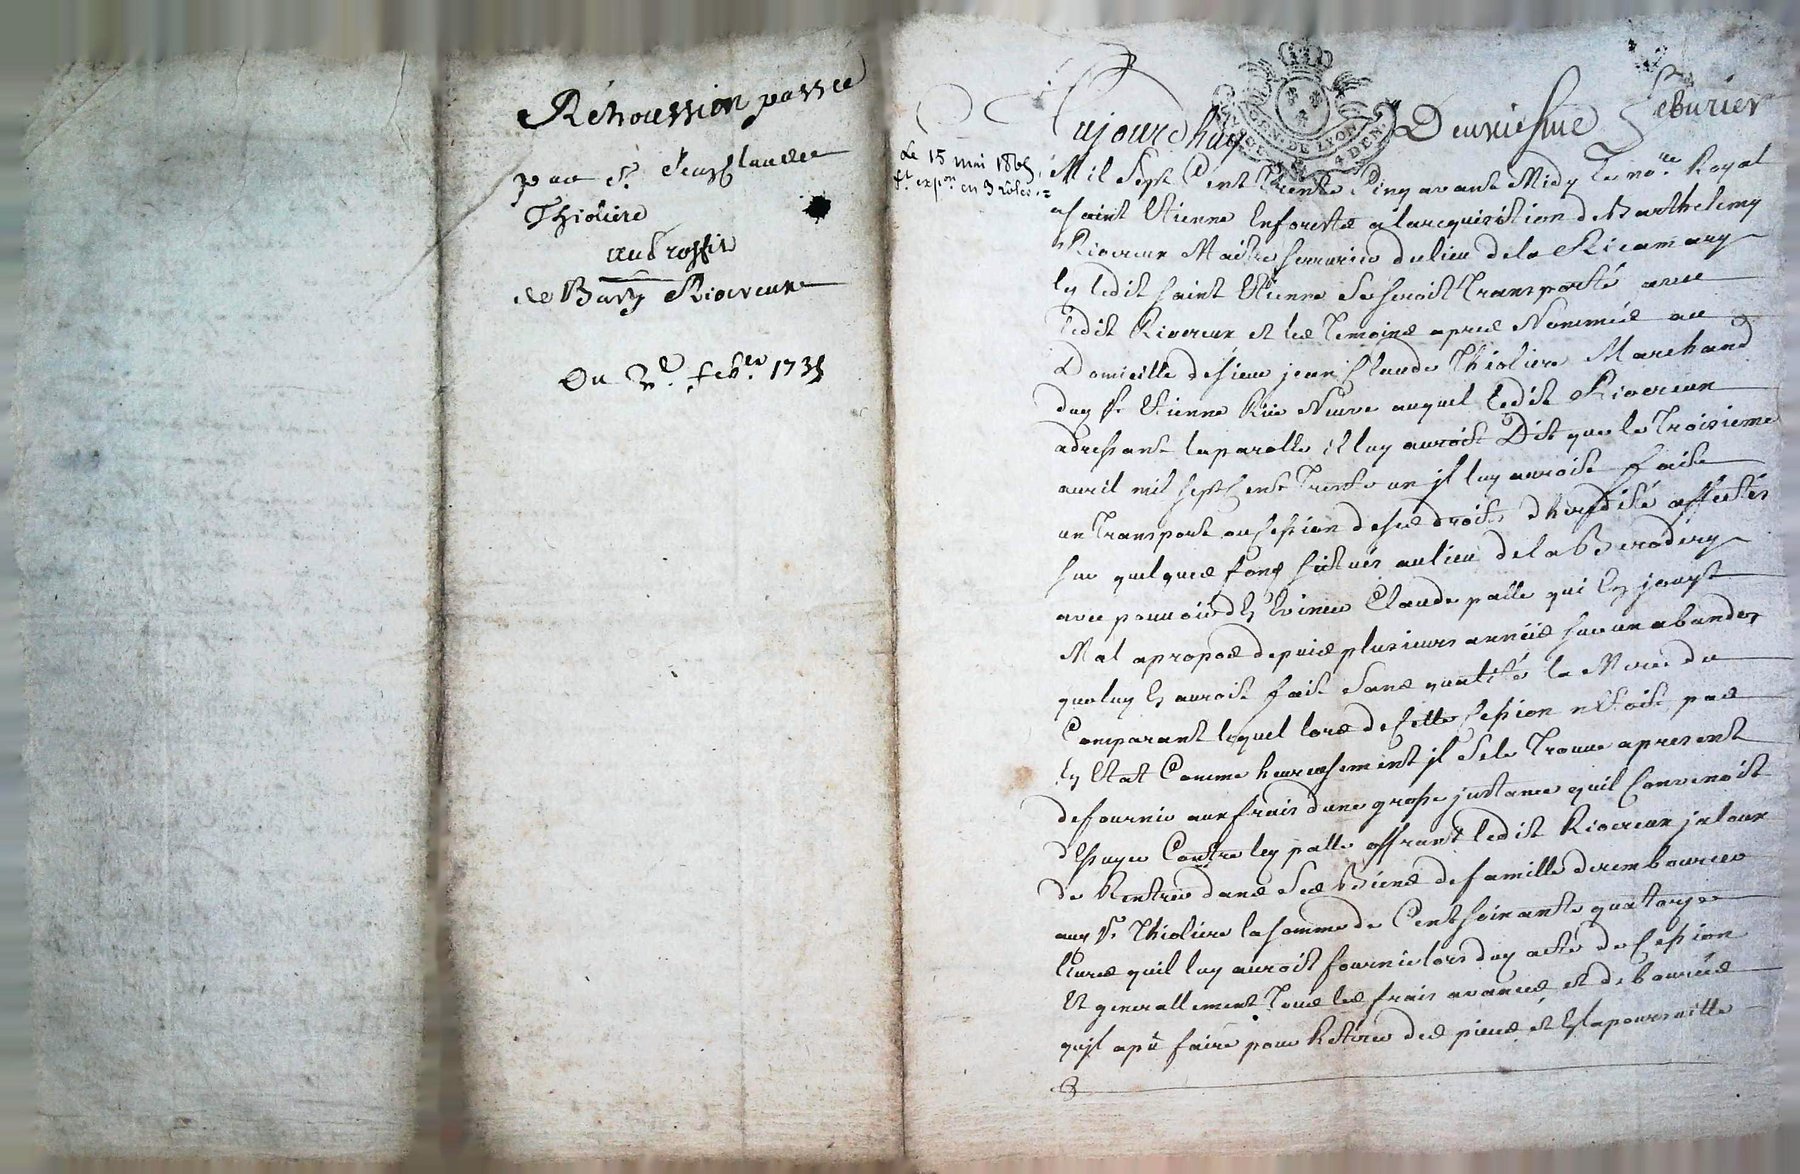 Rétrocession passée
par Sr. Jean Claude
Thioliere
au proffit
de Barthy Riocreux
Du 2e. feber. 1735
Le 15 mai 186
ft. expon. en 3 rôles
GEN. DE LYON
4 DEN
Aujourdhuy Deuxiesme febvrier
Mil Sept Cent Trente Cinq avant Midy Le nore. Royal
a Saint Etienne En forestz a la requisition de Barthelemy
Riocreux Maitre serrurier du lieu de la Ricamary
Ez ledit Saint Etienne Se seroit Transporté avec
ledit Riocreux et les Temoins apres Nommés au
Domicille de sieur jean Claude Thioliere Marchand
duy St. Etienne Rüe Neuve auquel ledit Riocreux
adressant la parolle il luy auroit Dit que le Troisieme
avril mil sept Cent Trente un jl luy auroit faite
un Transport ou Cession de ses droits d'heredité affectés
sur quelques fons scitués au lieu de la Beraudiery
avec pouvoir d'Evincer Claude palle qui En jouyt
Mal apropos depuis plusieurs années sur un abandon
que luy En auroit fait Sans qualité la Mere du
Comparant lequel lors de Cette Cession n'Etoit pas
En Etat Comme heureusement jl Se le Trouve a present
de fournir aux frais d'une grosse jnstance quil Convenoit
d'Essuyer Contre ley palle offrant ledit Riocreux jaloux
de Rentrer dans Ses Biens de famille de rembourcer
aux Sr. Thioliere la somme de Cent soixante quatorze
livres quil luy auroit fournie lors duy acte de Cession
Et generallement Tous les frais avancés et debourcés
qujl a pü faire pour Retirer des pieces et Ez la poursuitte